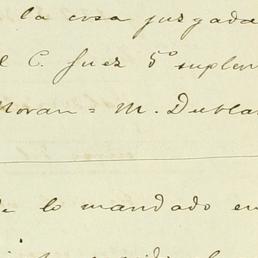 la cosa juzgada
l C. Juez 5º suplen
Moran = M. Dublan
de lo mandado en